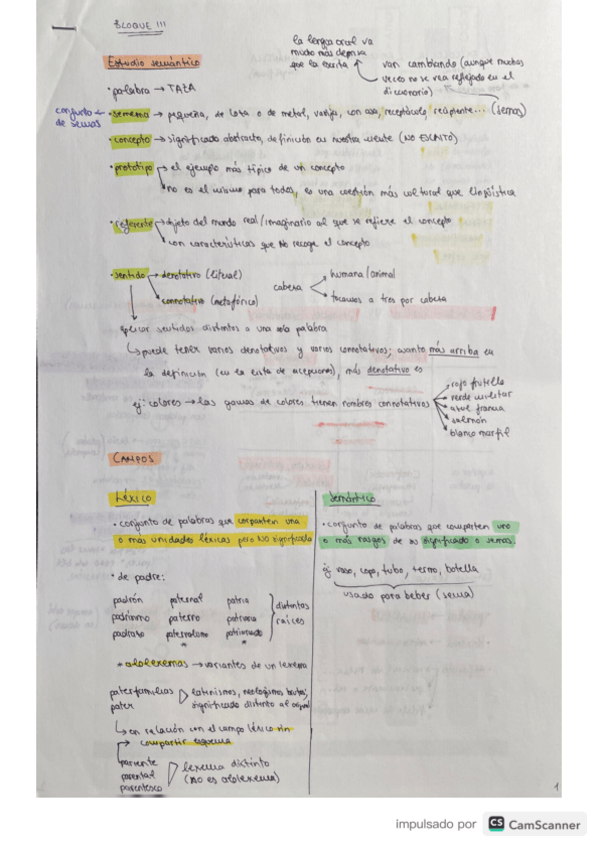 BLOQUE III
la lengua oral va
mucho más deprisa
que la escrita
van cambiando (aunque muchas
veces no se vea reflejado en el
diccionario)
Estudio semántico
· palabra → TAZA
conjunto
de semas
· semema → pequeña, de loza o de metal, vasija, con asa, receptáculo recipiente... (semas)
· concepto → significado abstracto, definición en nuestra mente (NO ESCRITO)
· prototipo → el ejemplo más típico de un concepto
no es el mismo para todos, es una cuestión más cultural que lingüística
· referente → objeto del mundo real/imaginario al que se refiere el concepto
con características que NO recoge el concepto
· sentido → denotativo (literal)
connotativo (metafórico)
cabeza
humana/animal
tocamos a tres por cabeza
aplicar sentidos distintos a una sola palabra
puede tener varios denotativos y varios connotativos; cuanto más arriba en
la definición (en la lista de acepciones), más denotativo es
ej: colores → las gamas de colores tienen nombres connotativos
rojo frutilla
verde militar
azul francia
salmón
blanco marfil
CAMPOS
Léxico
· conjunto de palabras que comparten una
o más unidades léxicas pero NO significado
· de padre:
padrón paternal patria
padrinno paterno patriarca
padrazo paternalismo patriarcado
distintas
raíces
* alolexemas → variantes de un lexema
paterfamilias
pater
latinismos, neologismos
significado distinto al
en relación con el campo léxico sin
compartir
pariente
parental
parentesco
lexema distinto
(no es alolexema)
Semántico
· conjunto de palabras que comparten uno
o más rasgos de su significado o semas.
ej: vaso, copa, tubo, termo, botella
usado para beber (sema)
1
impulsado por CS CamScanner